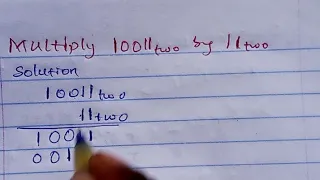 Multiply 10011two by 11two
Solution
10011two
11two
10011
001